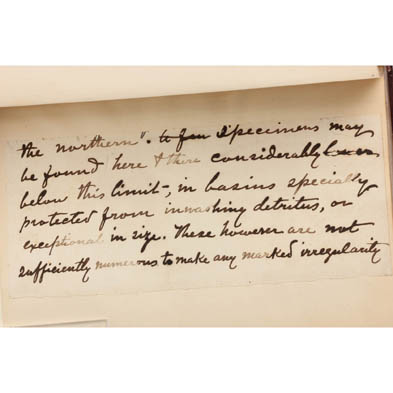 the northern". to few Specimens may
be found here & there considerably lower
below this limit, in basins specially
protected from inwashing detritus, or
exceptional in size. These however are not
sufficiently numerous to make any marked irregularity